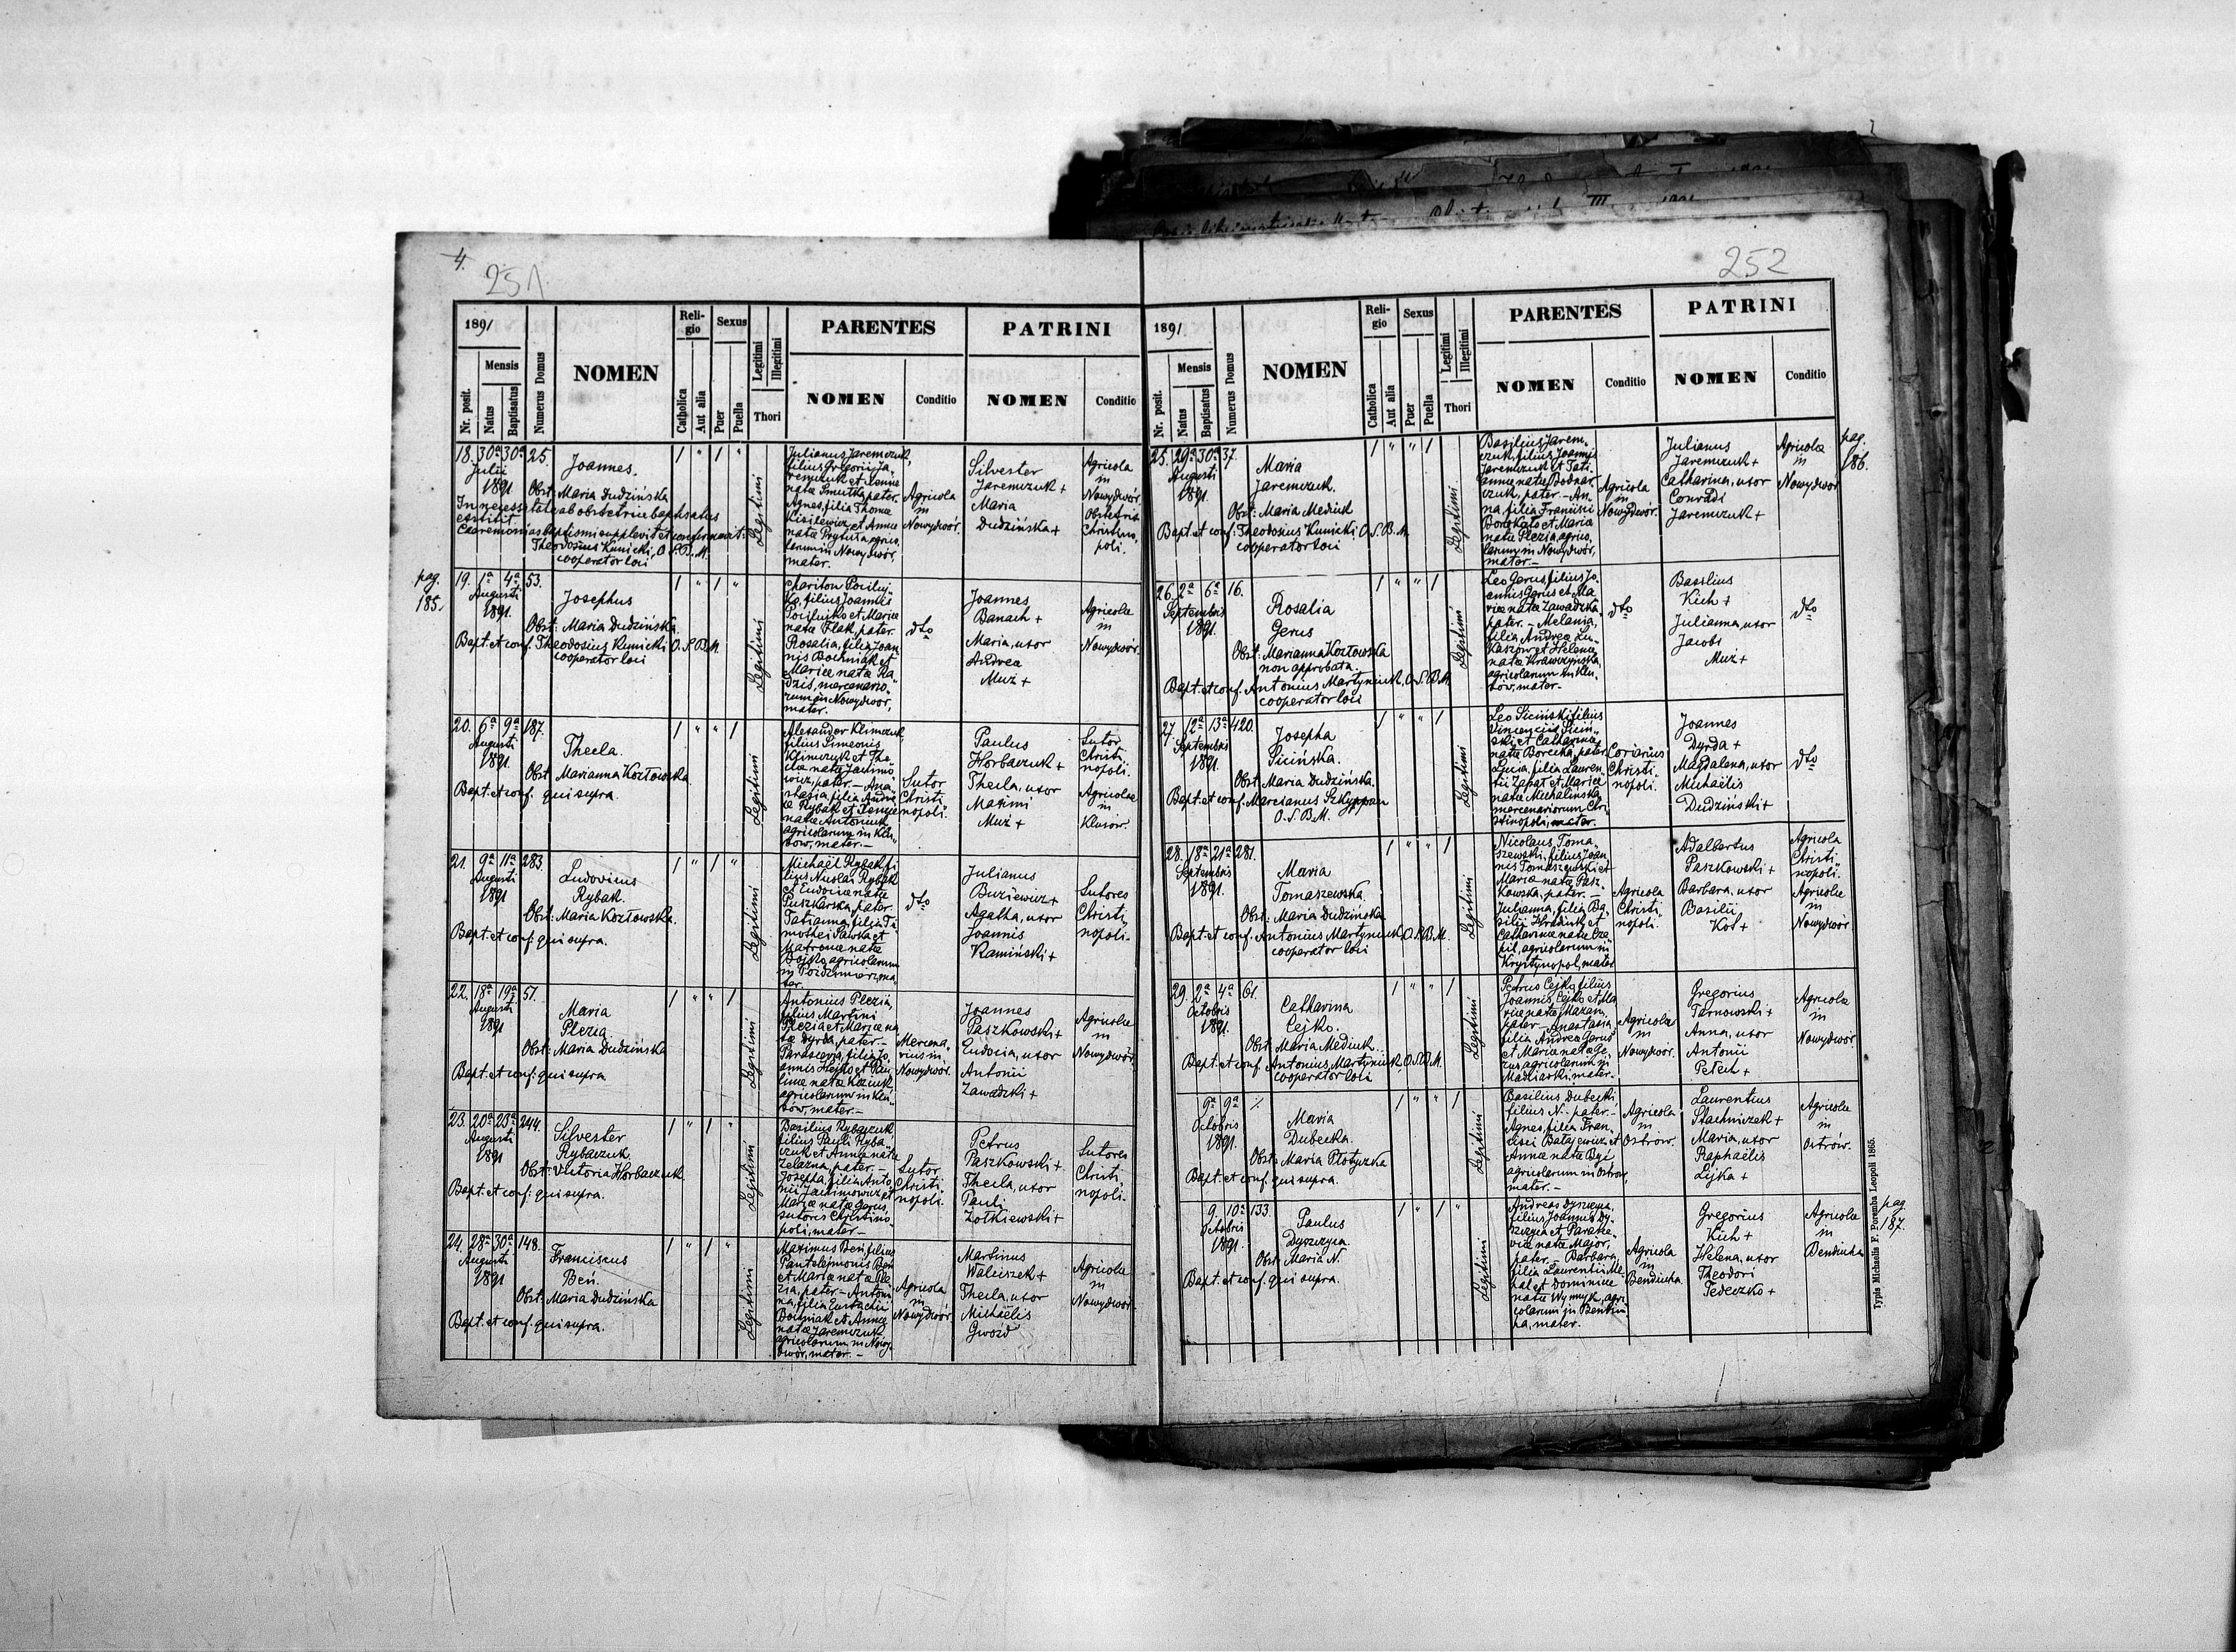 4.
251.
1891
Religio
Sexus
Legitimi
Illegitimi
PARENTES
PATRINI
Mensis
Nr. posit.
Natus
Baptisatus
Numerus Domus
NOMEN
Catholica
Aut alia
Puer
Puella
Thori
NOMEN
Conditio
NOMEN
Conditio
18. 30a 30a 25.
Julii
1891
Joannes.
Obst: Maria Dudzińska
In necessitate ab obstetrice baptisatus
exstitit.
Caeremonias baptismi supplevit et confirmavit:
Theodosius Kunicki, O.S.B.M.
cooperator loci
Legitimi
Julianus Jaremczuk,
filius Gregorii Ja-
remczuk et Xeniae
natae Smutka, pater.
Agnes, filia Thomae
Kisilewicz et Annae
natae Prytuła, agrico-
larum in Nowydwór,
mater.
Agricola
in
Nowydwór.
Silvester
Jaremczuk +
Maria
Dudzińska +
Agricola
in
Nowydwór
Obstetrix
Christino-
poli.
pag.
185.
19. 1a 4a 53.
Augusti
1891.
Josephus
Obst: Maria Dudzińska.
Bapt. et conf. Theodosius Kunicki O.S.B.M.
cooperator loci
Legitimi
Chariton Pociluj-
ko, filius Joannis
Pocilujko et Mariae
natae Flak, pater.
Rosalia, filia Joan-
nis Bochniak et
Mariae natae Ka
dzis, mercenario-
rum in Nowydwór,
mater.
dto
Joannes
Banach +
Maria, uxor
Andreae
Muż +
Agricolae
in
Nowydwór.
20. 6a 9a 187.
Augusti
1891.
Thecla.
Obst. Marianna Kozłowska
Bapt. et conf. qui supra.
Legitimi
Alexander Klimczuk,
filius Simeonis
Klimczuk et The-
clae natae Jachimo
wicz, pater. - Ana-
stasia, filia Andre
ae Rybak et Xeniae
natae Antoniuk
agricolarum in Klu-
sów, mater. -
Sutor
Christi-
nopoli.
Paulus
Horbaczuk +
Thecla, uxor
Maximi
Muż +
Sutor
Christi-
nopoli.
Agricolae
in
Klusów.
21. 9a 11a 283.
Augusti
1891
Ludovicus
Rybak.
Obst: Maria Kozłowska.
Bapt. et conf. qui supra.
Legitimi
Michaël Rybak, fi
lius Nicolai Rybak
et Eudociae natae
Puszkarska, pater.
Tatianna, filia Ti
mothei Sawka et
Matronae natae
Bojko, agricolarum
in Poździmierz, ma
ter.
dto
Julianus
Buziewicz +
Agatha, uxor
Joannis
Kamiński +
Sutores
Christi-
nopoli.
22. 18a 19a 51.
Augusti
1891
Maria
Plezia
Obst: Maria Dudzińska
Bapt. et conf: qui supra
Legitimi
Antonius Plezia,
filius Martini
Plezia et Mariae na
tae Dyrda, pater. -
Parascevia, filia Jo
annis Hejko et Pau
linae natae Koziuk,
agricolarum in Klu-
sów, mater. -
Mercena-
rius in
Nowydwór.
Joannes
Paszkowski +
Eudocia, uxor
Antonii
Zawadzki +
Agricolae
in
Nowydwór.
23. 20a 23a 244.
Augusti
1891
Silvester
Rybaczuk.
Obst: Victoria Horbaczuk.
Bapt. et conf: qui supra.
Legitimi
Basilius Rybaczuk
filius Pauli Ryba-
czuk et Annae natae
Żelazna, pater. -
Josepha, filia Anto-
nii Jachimowicz et
Mariae natae Gerus,
sutoris Christino-
poli, mater -
Sutor
Christi-
nopoli.
Petrus
Paszkowski +
Thecla, uxor
Pauli
Żołkiewski +
Sutores
Christi-
nopoli.
24. 28a 30a 148.
Augusti
1891
Franciscus
Beń.
Obst: Maria Dudzińska
Bapt. et conf: qui supra.
Legitimi
Maximus Beń, filius
Pantelejmonis Beń
et Mariae natae Ple
zia, pater. - Antoni
na, filia Eustachii
Bochniak et Annae
natae Jaremczuk
agricolarum in Nowy-
dwór, mater. -
Agricola
in
Nowydwór
Martinus
Waliszek +
Thecla, uxor
Michaëlis
Gwozd
Agricolae
in
Nowydwór.
252
1891.
Religio
Sexus
Legitimi
Illegitimi
PARENTES
PATRINI
Mensis
Nr. posit.
Natus
Baptisatus
Numerus Domus
NOMEN
Catholica
Aut alia
Puer
Puella
Thori
NOMEN
Conditio
NOMEN
Conditio
25. 29a 30a 37.
Augusti
1891.
Maria
Jaremczuk.
Obst: Maria Mediuk
Bapt. et conf: Theodosius Kunicki O.S.B.M.
cooperator loci
Legitimi
Basilius Jarem-
czuk, filius Joannis
Jaremczuk et Tati-
annae natae Bodnar-
czuk, pater - An-
na, filia Francisci
et Mariae
natae Plezia, agrico-
larum in Nowydwór,
mater. -
Agricola
in
Nowydwór.
Julianus
Jaremczuk +
Catharina, uxor
Conradi
Jaremczuk +
Agricolae
in
Nowydwór
pag.
186.
26. 2a 6a 16.
Septembris
1891.
Rosalia
Gerus
Obst: Marianna Kozłowska
non approbata.
Bapt. et conf. Antonius Martyniuk, O.S.B.M.
cooperator loci
Legitimi
Leo Gerus, filius Jo-
annis Gerus et Ma-
riae natae Zawadzka,
pater. - Melania,
filia Andreae Lu-
kaszów et Helenae
natae Krawczyńska,
agricolarum in Klu-
sów, mater. -
dto
Basilius
Kich +
Julianna, uxor
Jacobi
Muż +
dto
27. 12a 13a 420.
Septembris
1891.
Josepha
Sicińska.
Obst: Maria Dudzińska.
Bapt. et conf. Marcianus Szkyrpan
O.S.B.M.
Legitimi
Leo Siciński, filius
Vincencii Siciń-
ski et Catharinae
natae Borecka, pater.
Lucia, filia Lauren-
tii Zapał et Mariae
natae Michalinska,
mercenariorum Chri-
stinopoli, mater.
Coriarius
Christi-
nopoli.
Joannes
Dyrda +
Magdalena, uxor
Michaëlis
Dudziński +
dto
28. 18a 21a 281.
Septembris
1891.
Maria
Tomaszewska.
Obst: Maria Dudzińska
Bapt. et conf. Antonius Martyniuk, O.S.B.M.
cooperator loci
Legitimi
Nicolaus Toma-
szewski, filius Joan-
nis Tomaszewski et
Mariae natae Pasz-
kowska, pater. -
Julianna, filia Ba-
silii et
Catharinae natae Cza
pil, agricolarum in
Krystynopol, mater
Agricola
Christi-
nopoli.
Adalbertus
Paszkowski +
Barbara, uxor
Basilii
Kot +
Agricola
Christi-
nopoli.
Agricolae
in
Nowydwór
29. 2a 4a 61.
Octobris
1891.
Catharina
Cejko.
Obst: Maria Mediuk.
Bapt. et conf. Antonius Martyniuk O.S.B.M.
cooperator loci
Legitimi
Petrus Cejko, filius
Joannis Cejko et Ma
riae natae Mazan,
pater - Anastasia,
filia Andreae Gerus
et Mariae natae Ge-
rus, agricolarum in
Madziarki, mater.
Agricola
in
Nowydwór.
Gregorius
Tarnowski +
Anna, uxor
Antonii
Petech +
Agricolae
in
Nowydwór.
9a 9a %
Octobris
1891.
Maria
Dubecka.
Obst: Maria Płotyczka
Bapt. et conf: qui supra.
Legitimi
Basilius Dubecki
filius N. - pater. -
Agnes, filia Fran-
cisci Batajewicz et
Annae natae Byś
agricolarum in Ostrów,
mater. -
Agricola
in
Ostrów.
Laurentius
Stachniczek +
Maria, uxor
Raphaëlis
Lejka +
Agricolae
in
Ostrów.
9. 10a 133.
Octobris
1891.
Paulus
Dyszczyca.
Obst: Maria N.
Bapt. et conf: qui supra.
Legitimi
Andreas Dyszczyca,
filius Joannis Dy-
szczyca et Parasce-
viae natae Major,
pater - Barbara,
filia Laurentii Me-
hal et Dominicae
natae Wynnyk, agri-
colarum in Bendiu-
ha, mater.
Agricola
in
Bendiucha.
Gregorius
Kich +
Helena, uxor
Theodori
Fedeczko +
Agricolae
in
Bendiucha
pag
187.
Typis Michaelis F. Poremba Leopoli 1865.